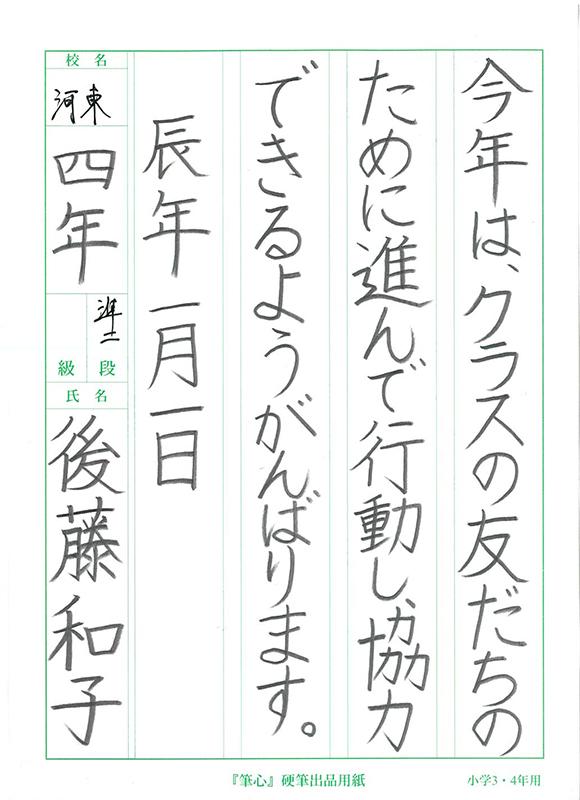 今年は、クラスの友だちの
ために進んで行動し、協力
できるようがんばります。
辰年 一月一日
校名
河東
四年
準二
段
級
氏名
後藤和子
『筆心』硬筆出品用紙
小学3・4年用